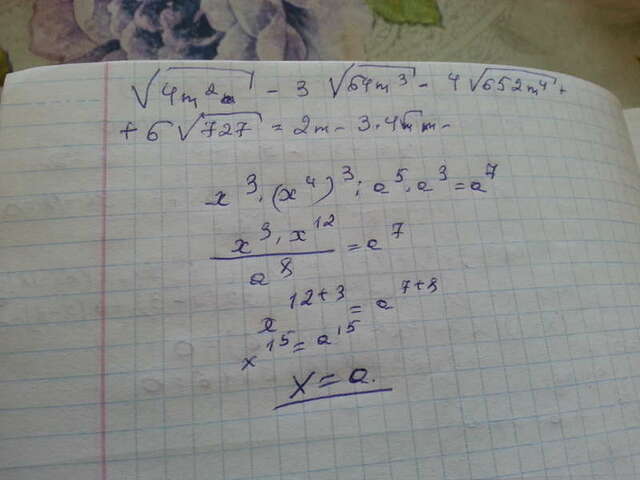 √4m² - 3 √64m³ - 4 √652m⁴ +
+ 6 √727 = 2m - 3·4m m -
x³·(x⁴)³ : a⁵·a³ = a⁷
x³·x¹²
= a⁷
a⁸
x¹²⁺³ = a⁷⁺⁸
x¹⁵ = a¹⁵
x = a.